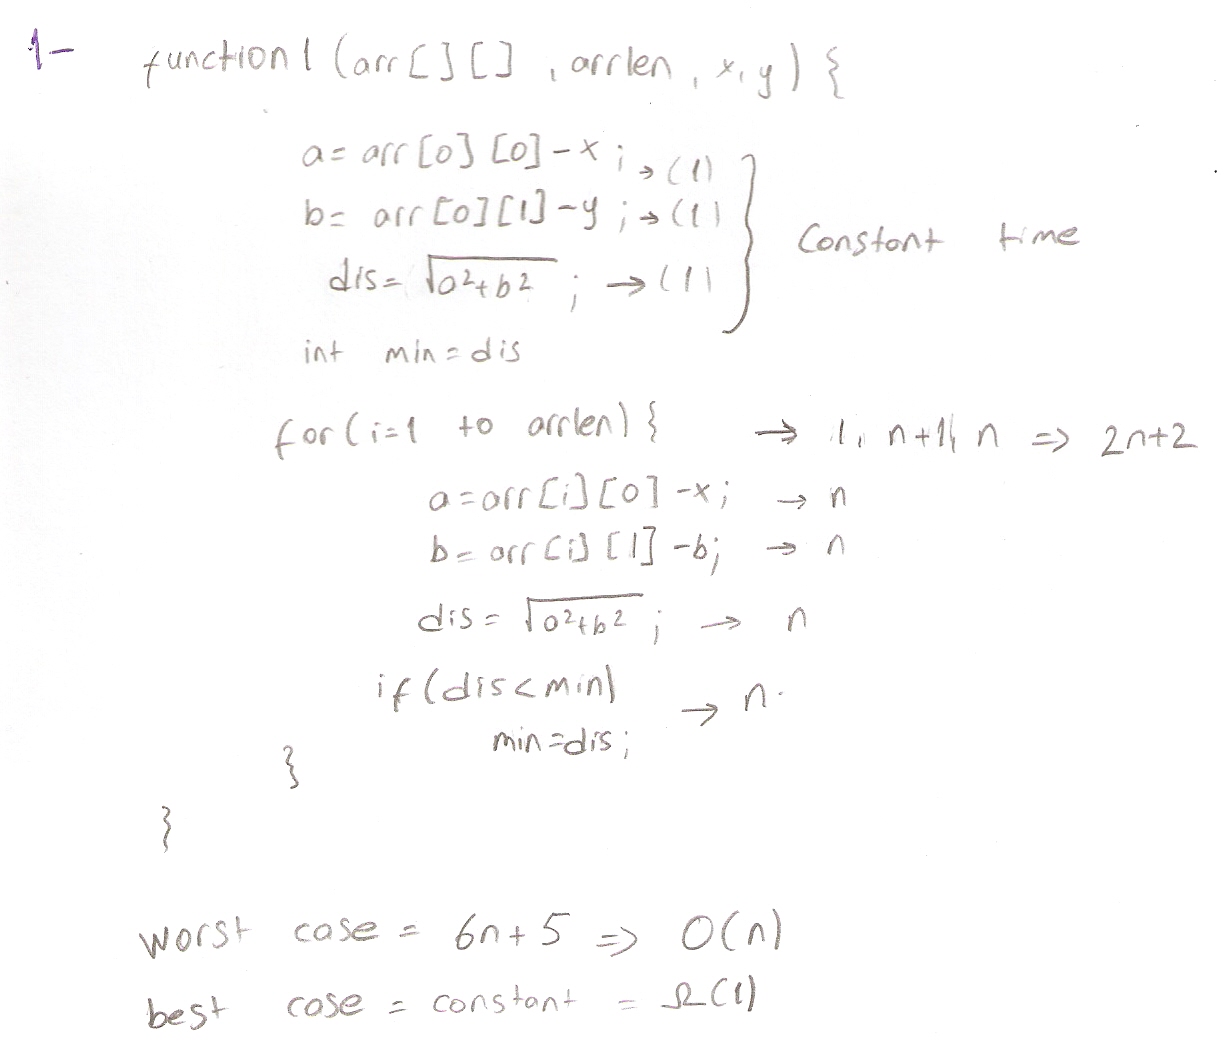 1- function1 (arr[][] , arrlen, x, y) {
a= arr[0][0]-x; → (1)
b= arr[0][1]-y; → (1)
Constant time
dis= √a²+b² ; → (1)
int min=dis
for(i=1 to arrlen) { → 1, n+1, n => 2n+2
a=arr[i][0]-x; → n
b=arr[i][1]-b; → n
dis= √a²+b² ; → n
if(dis<min) → n
min=dis;
}
}
worst case = 6n+5 => O(n)
best case = constant = Ω(1)